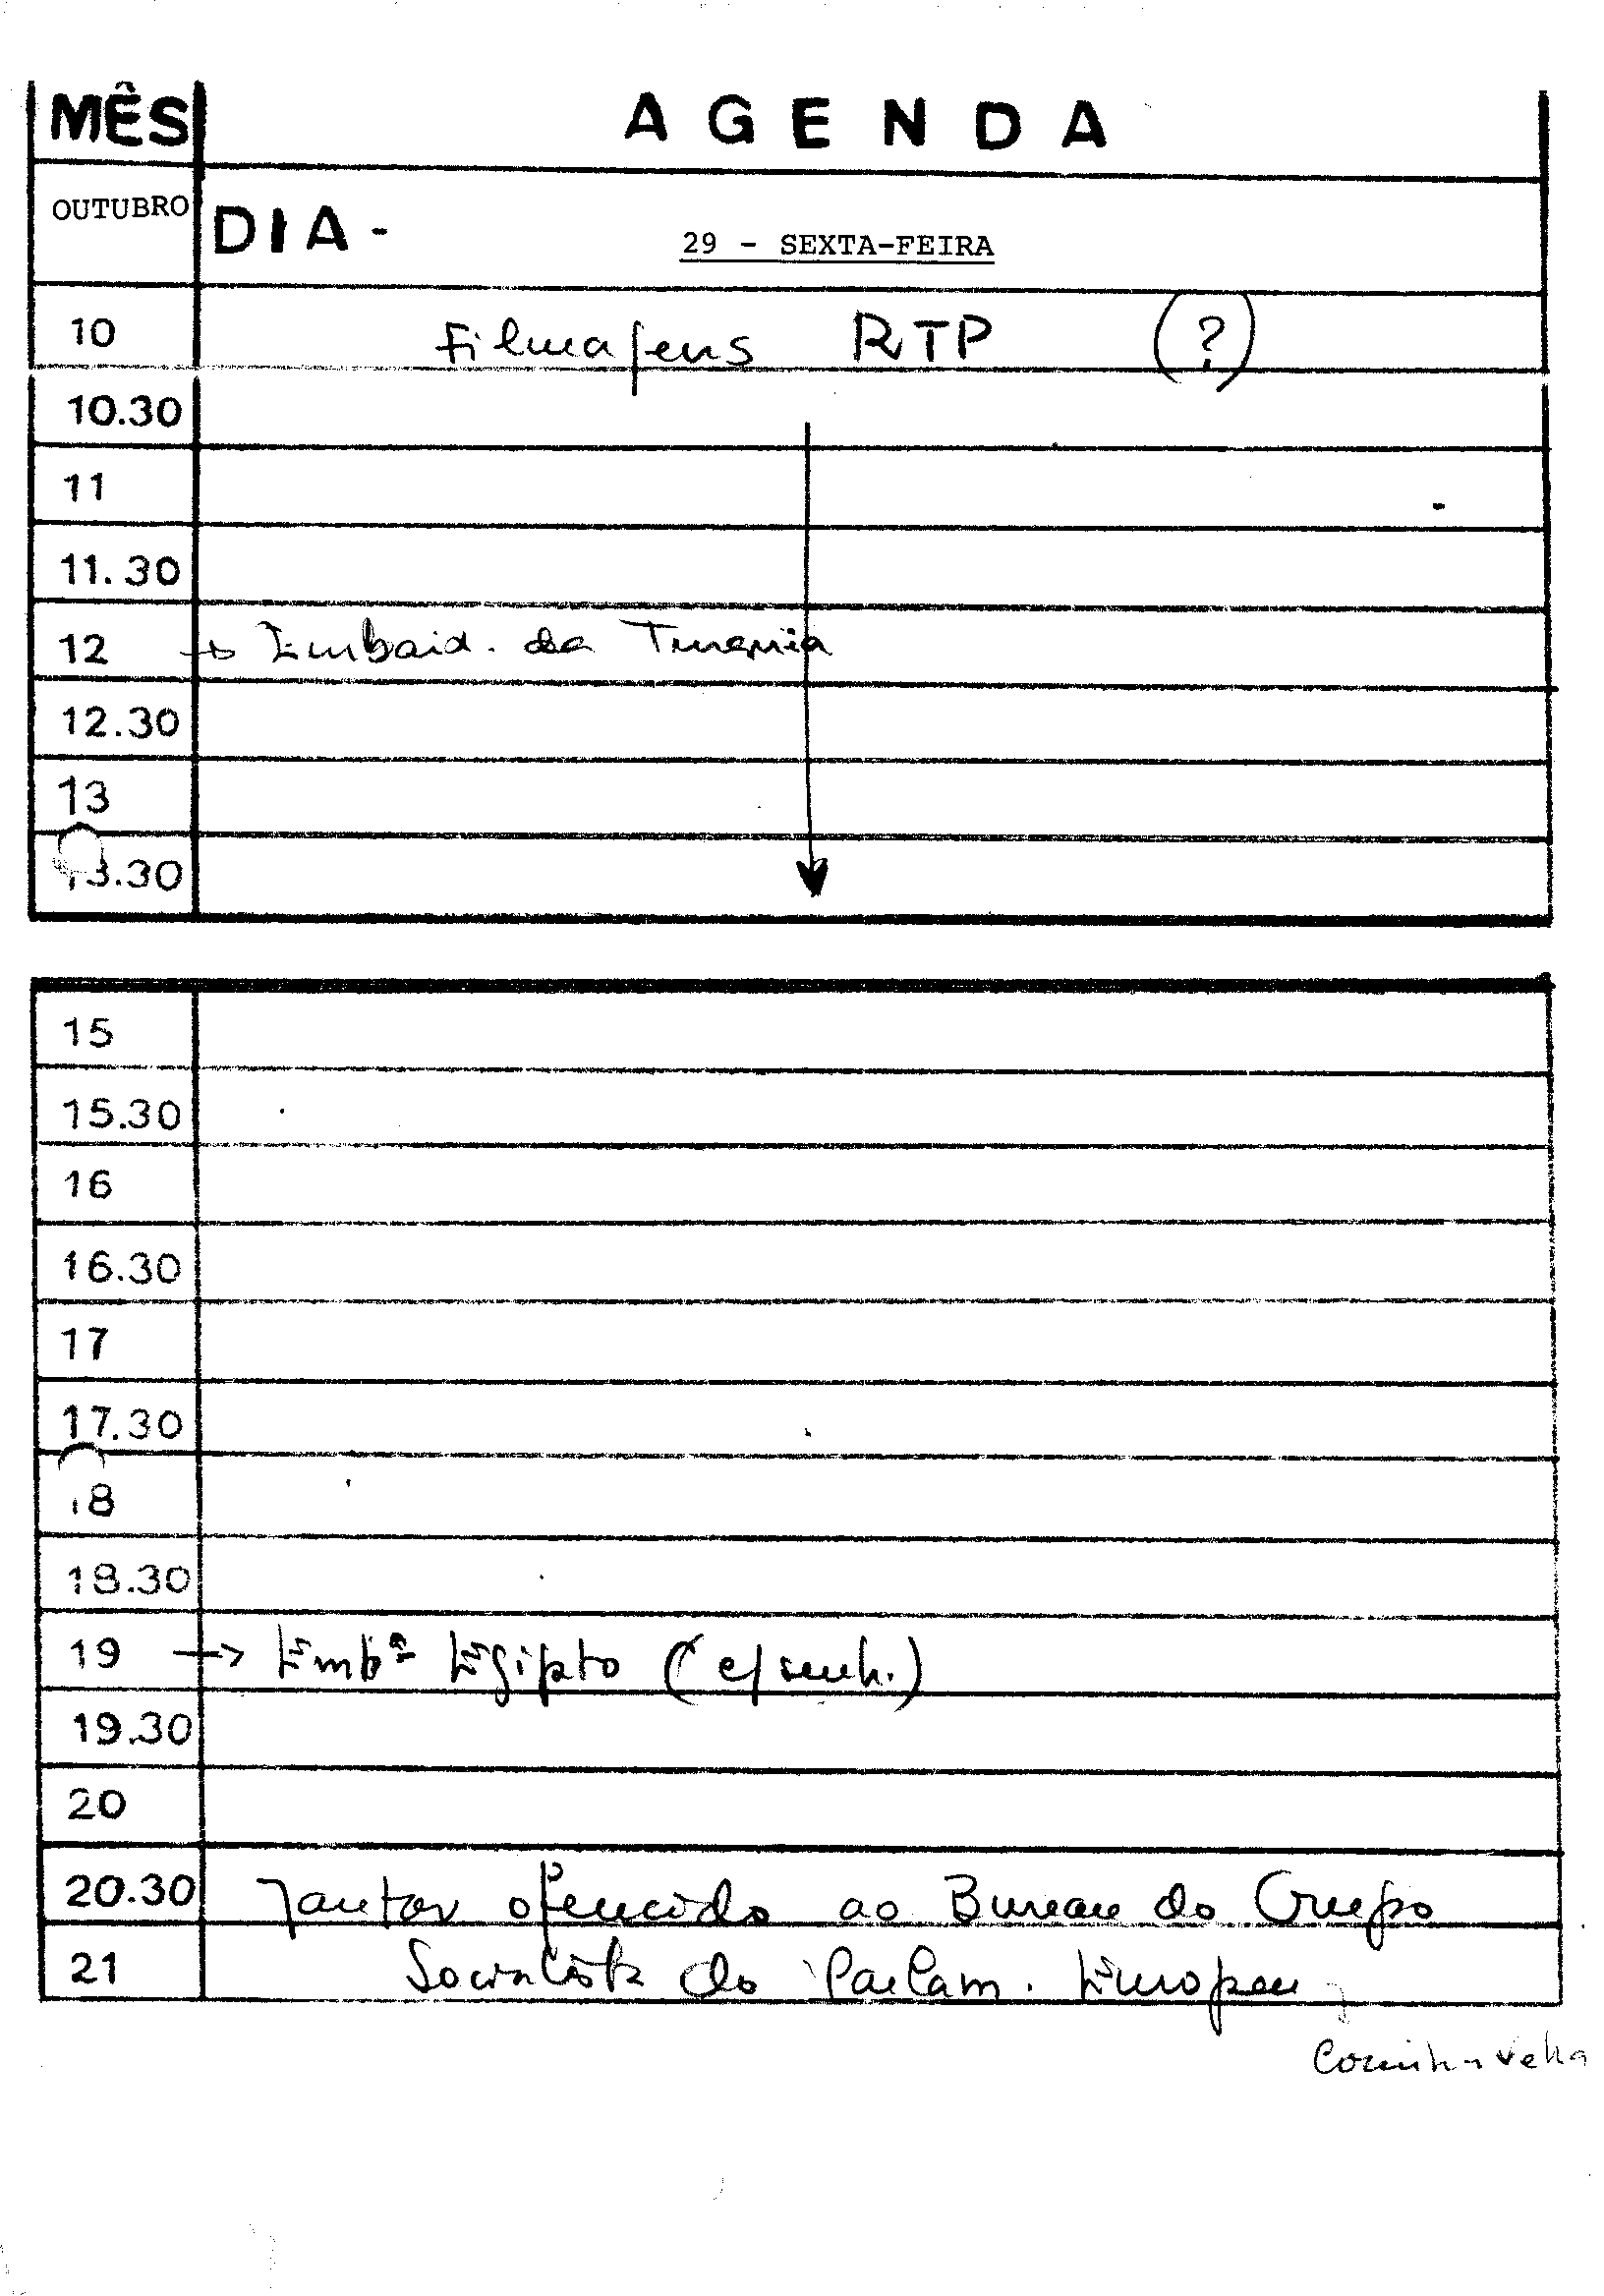 MÊS AGENDA
OUTUBRO DIA - 29 - SEXTA-FEIRA
10 Filmagens RTP (?)
10.30
11
11.30
12 → Embaix. da Turquia
12.30
13
13.30
15
15.30
16
16.30
17
17.30
18
18.30
19 → Embª Egipto (c/senh.)
19.30
20
20.30 Jantar oferecido ao Bureau do Grupo
21 Socialista do Parlam. Europeu
Cozinha Velha